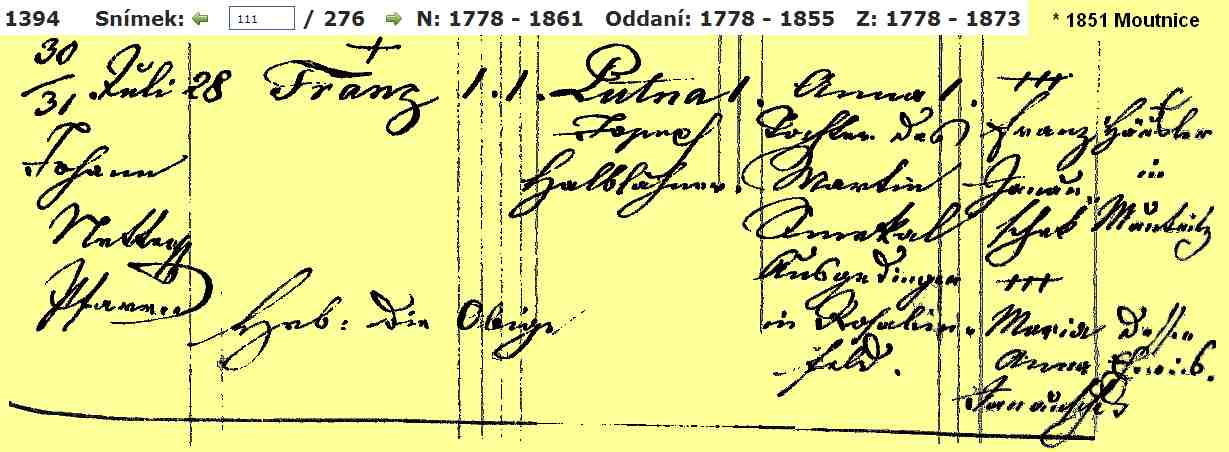 1394 Snímek: 111 / 276 N: 1778 - 1861 Oddaní: 1778 - 1855 Z: 1778 - 1873 * 1851 Moutnice
30
31 Juli 28 Franz 1. 1. Putna 1. Anna 1. +++
Joseph Tochter des Franz Häusler
Johann Halblähner. Martin Janau- in
Smekal schek Mautnitz
Ausgedinger +++
Pfarrer Heb: die Obige in Rosalien- Maria dessen
feld. Anna
Janauschek